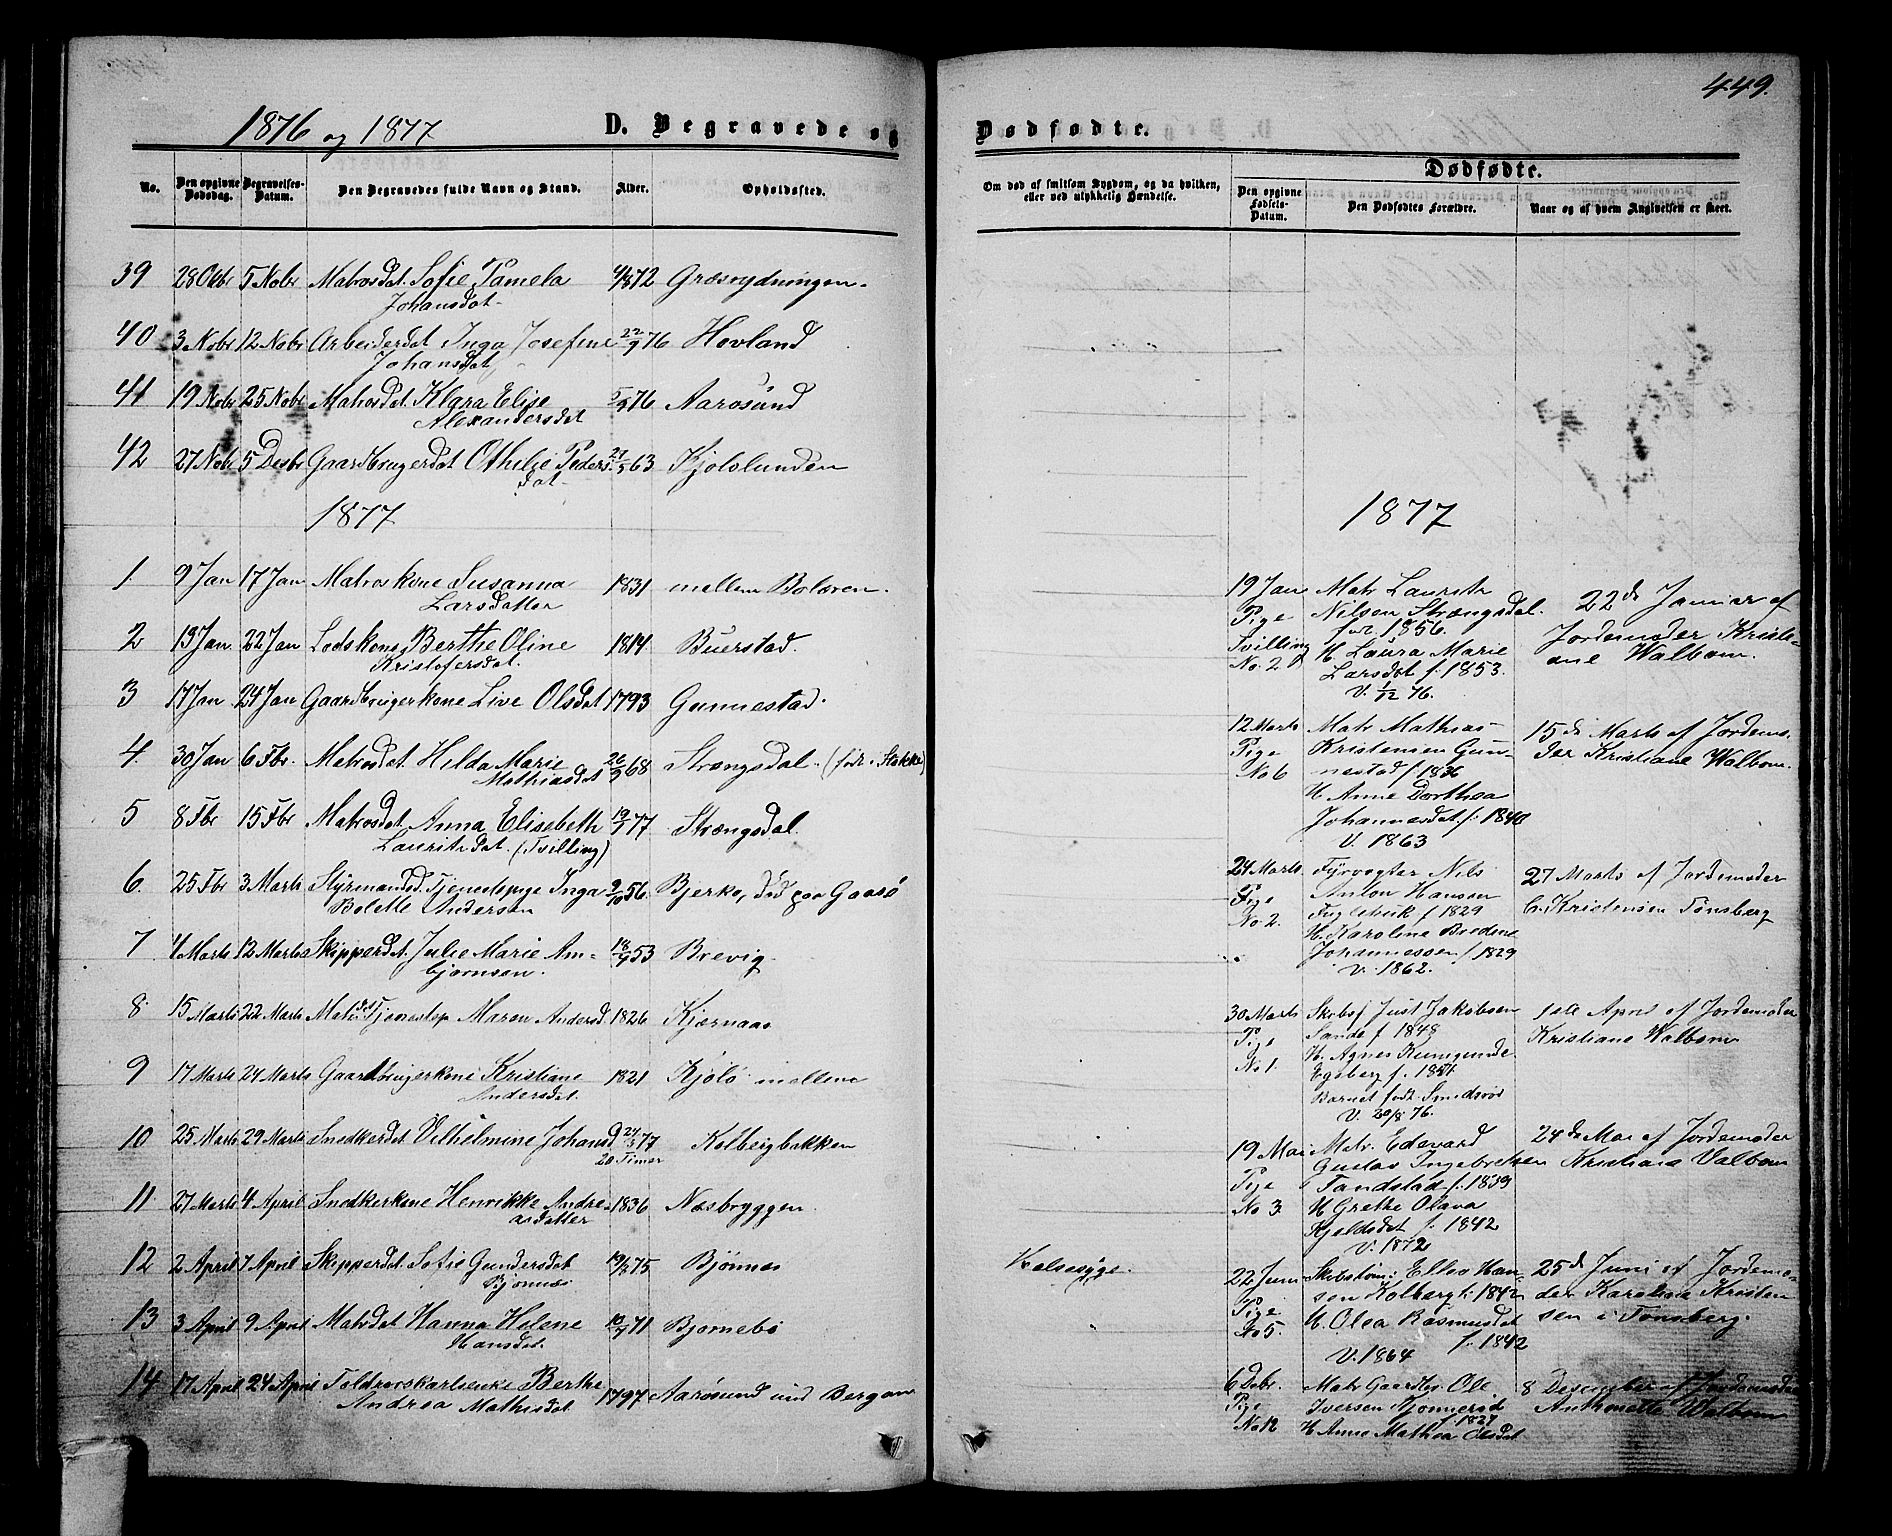 449.
1876 og 1877
D. Begravede og
No.
Den opgivne Dødsdag.
Begravelses-Datum.
Den Begravedes fulde Navn og Stand.
Alder.
Opholdssted.
39 28 Oktbr 5 Nobr Matrosdat. Sofie Pamela 4/8 72 Græsrydningen
Johansdat
40 3 Nobr 12 Nobr Arbeiderdat Inga Josefine 22/9 76 Hovland
Johansdat
41 19 Nobr 25 Nobr Matrosdat. Klara Elise 5/9 76 Aarøsund
Alexandersdat
42 27 Nobr 5 Desbr Gaardbrugerdat Othelie Peders 27/5 63 Kjølslunden
dat
1877
1. 9 Jan 17 Jan Matroskone Susanna 1831 mellem Bolæren.
Larsdatter
2 13 Jan 22 Jan Lodskone Berthe Oline 1814 Buerstad.
Kristofersdat.
3 17 Jan 24 Jan Gaardbrugerkone Live Olsdat 1793 Gunnestad.
4. 30 Jan 6 Fbr. Matrosdat. Helda Marie 26/9 68 Strængsdal. (født i Stokke)
Mathiasdat
5 8 Fbr 15 Fbr Matrosdat. Anna Elisebeth 19/1 77 Strængsdal.
Lauritzdat. (Tvilling)
6. 25 Fbr 3 Marts Styrmandsd. Tjenestepige Inga 9/10 56. Bjerkø, død paa Gaasø
Bolette Andersen
7 4 Marts 12 Marts Skipperdat. Julie Marie Am- 18/9 53 Brevig
bjørnsen.
8 15 Marts 22 Marts Tjenestep Maren Andersd. 1826 Kjærnaas
9 17 Marts 24 Marts Gaardbrugerkone Kristiane 1821 Kjøle mellem
Andersdat.
10 25 Marts 29 Marts Snedkerdat Vilhelmine Johansd 24/3 77 Kolbergbakken
20 Timer
11. 27 Marts 4 April Snedkerkone Henrikke Andre- 1836 Næsbryggen.
asdatter
12 2 April 7 April Skipperdat. Sofie Gundersdat 75 Bjønnes
Bjønnes
13 3 April 9 April Matrdat Hanna Helene 10/9 71 Bjørnebø
Hansdat.
14 17 April 24 April Toldroerskarlsenke Berthe 1797 Aarøsund ind Bergan
Andrea Mathisdat.
Dødfødte.
Om død af smitsom Sygdom, og da hvilken, eller ved ulykkelig Hændelse.
Dødfødte.
Den opgivne Fødsels-Datum.
Den Dødfødtes Forældre.
Naar og af hvem Angivelsen er skeet.
Halssyge.
1877
19 Jan Matr Lauritz
Pige Nilsen Strængsdal. 22de Januar af
Tvilling født 1856. Jordemoder Kristi-
No. 2 H. Laura Marie ane Walbom.
Larsdat f. 1853.
V. 1/12 76.
12 Marts Matr Mathias 15de Marts af Jordemo-
Pige Kristensen Gun- der Kristiane Walbom.
No 6 nestad f. 1836
H. Anne Dorthea
Johannesdat f. 1840
V. 1863
24 Marts Fyrvogter Nils 27 Marts af Jordemoder
Pige Anton Hansen C. Kristensen Tønsberg
No 2. Fuglehuk f 1829
H. Karoline Bredine
Johannessen f 1829
V. 1862.
30 Marts Skibsf Just Jakobsen 1ste April af Jordemoder
Pige Sande f. 1848 Kristiane Walbom
No 1. H. Agnes Kunigunde
Egeberg f. 1851
Barnet født Smidsrød
V. 20/8 76.
19 Mai Matr. Edevard 24de Mai af Jordemoder
Gustav Ingebretsen Kristiane Valbom
Pige Tandstad f. 1839
No 3. H Grethe Olava
Kjeldsdat f. 1842
V. 1872
22 Juni Skibstøm: Ellev Han- 25de Juni af Jordemo-
Pige sen Kolberg f. 1842 der Karoline Kristen
No 5. H. Olea Rasmusdat sen i Tønsberg.
f. 1842
V. 1864
6 Debr. Matr Gaardbr Ole 8 Desember af Jordemoder
Pige Iversen Bjønnerød Anthonette Walbom
f 1827
No 12 H Anne Mathea Olsdat